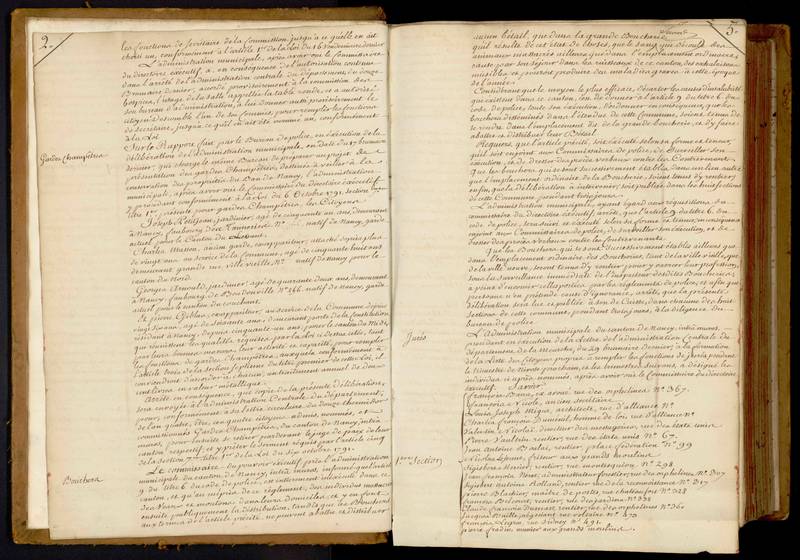 2.
les fonctions de secretaire de la Commission, jusqu'à ce qu'elle en ait
choisi un, conformément à l'article 1er de la Loi du 16 vendemiaire dernier
L'administration municipale, après avoir oui le Commissaire
du directoire executif, et, en consequence de l'autorisation contenue
dans l'arrêté de l'administration centrale du département, du douze
Brumaire dernier, accorde provisoirement à la Commission des
hospices, l'usage de la salle appellée la table ronde, et a autorisé
son bureau d'administration, à lui donner aussi provisoirement le
citoyen l'un de ses commis, pour remplir les fonctions
de secretaire, jusqu'à ce qu'il en ait été nommé un, conformément
à la Loi
Gardes Champêtres
Sur le Rapport fait par le Bureau de police, en execution de la
délibération de l'administration municipale, en date du 17 brumaire
dernier, qui charge le même Bureau de préparer un projet de
présentation des gardes Champêtres, destinés à veiller à la
conservation des propriétés du Ban de Nancy, l'administration
municipale, après avoir oui le Commissaire du Directoire executif
procédant conformément à la Loi du 6 Octobre 1791, section
titre 1er, presente pour gardes Champêtres, les Citoyens
Joseph jardinier, agé de cinquante un ans, demeurant
à Nancy, faubourg natif de Nancy, garde
actuel pour le Canton du Levant.
Charles Masson, ancien garde, compariteur, attaché depuis plus
de vingt ans au service de la Commune, agé de cinquante huit ans
demeurant grande rue, ville vieille, No. natif de Nancy pour le
canton du Nord.
Georges Arnould, jardinier, agé de quarante deux ans, demeurant
à Nancy, faubourg de Boudonville No. 266. natif de Nancy, garde
actuel pour le canton du couchant.
Et pierre compariteur, au service de la Commune depuis
vingt six ans, agé de soixante ans, demeurant porte de la Constitution
résidant à Nancy, depuis cinquante un ans, pour le canton du Midi,
qui réunissent les qualités requises par la Loi ci dessus citée, tant
par leurs bonnes moeurs, leur activité et capacité, pour remplir
les fonctions de gardes Champêtres, auxquels conformément à
l'article trois de la section septieme du titre premier de cette Loi, il
conviendroit d'accorder à chacun, un traitement annuel de deux
cent livres, en valeur métallique.
Arrête en conséquence, que copie de la présente délibération,
sera envoyée à l'administration Centrale du département,
pour, conformément à sa lettre circulaire du douze thermidor
de l'an quatre, être, ces quatre citoyens, admis, nommés, et
commissionnés Gardes Champêtres, du canton de Nancy, intra
muros, pour ensuite se retirer pardevant le juge de paix de leur
canton respectif, et y prêter le serment requis par l'article cinq
de la section 7. titre 1er de la Loi du six octobre 1791.
Bouchers
Le commissaire du pouvoir executif près l'administration
municipale du canton de Nancy, intra muros, informé que l'article
9 du titre 6 du code de police, est entierement inexecuté dans ce
canton, et qu'au mépris de ce réglement, des individus
des veaux et moutons dans leurs domiciles, et y en font
ensuite publiquement la distribution, tandis que les Bouchers
aux termes de l'article précité, ne peuvent abattre et distribuer
3.
aucun bétail, que dans la grande Boucherie
qu'il résulte de cet état de choses, que le sang qui découle des
animaux massacrés ailleurs que dans l'emplacement ordinaire,
cause par son séjour dans les ruisseaux de ce canton, des exhalaisons
nuisibles, et pourroit produire des maladies graves à cette époque
de l'année.
Considérant que le moyen le plus efficace, d'écarter les causes d'insalubrité
qui existent dans ce canton, est de donner à l'article 9 du titre 6. du
code de police, toute son execution, et d'ordonner en conséquence, que les
bouchers disséminés dans l'étendue de cette Commune, soient tenus de
se rendre dans l'emplacement dit de la grande boucherie, et d'y faire
abattre et distribuer leur Bétail.
Requiert, que l'article précité, soit exécuté selon sa forme et teneur,
qu'il soit enjoint aux Commissaires de police, de surveiller son
exécution, et de dresser des procès verbaux contre les Contrevenants.
Que les bouchers qui se sont successivement établis dans un lieu autre
que l'emplacement ordinaire de la Boucherie, soient tenus d'y rentrer;
enfin, que la délibération à intervenir, soit publiée dans les huit sections
de cette Commune, pendant trois jours.
L'administration municipale, ayant égard aux réquisitions du
commissaire du directoire executif, arrête, que l'article 9 du titre 6. du
code de police, sera suivi et exécuté selon sa forme et teneur, en conséquence
enjoint aux Commissaires de police, de surveiller son execution, et de
dresser des procès verbaux contre les contrevenants.
Que les Bouchers qui se sont successivement établis ailleurs que
dans l'emplacement ordinaire des Boucheries, tant de la ville vieille, que
de la ville neuve, seront tenus d'y rentrer pour y exercer leur profession,
sous la surveillance immédiate de l'inspecteur desdites Boucheries,
à peine d'encourir celles portées par les réglements de police, et afin que
personne n'en prétende cause d'ignorance, arrête que la présente
délibération sera lue et publiée à son de Caisse, dans chacune des huit
sections de cette commune, pendant trois jours, à la diligence du
bureau de police.
Jurés
L'Administration municipale du canton de Nancy, intra muros,
procedant en execution de la Lettre de l'administration Centrale du
département de la meurthe, du 29 brumaire dernier, à la formation
de la Liste des Citoyens propres à remplir les fonctions de jurés pendant
le trimestre de Nivose prochain, et les trimestres suivans, a désigné les
individus ci après nommés, après avoir oui le Commissaire du directoire
executif. Savoir
1ere Section
françois ex avoué, rue des orphelines No. 367.
françois Nicole, ancien militaire
Louis Joseph architecte, rue d'alliance No.
Charles françois homme de loi, rue d'alliance No.
Valentin Nicolas directeur des messageries, rue des etats unis
Pierre Vautrin rentier rue des etats unis No. 67.
Jean Antoine rentier, place fédération No. 99
Nicolas fripier aux grands moulins
Sigisbert rentier, rue montesquiou No. 298
Jean françois administrateur forestier, rue des orphelines No. 347
Sigisbert antoine Rolland, rentier rue de la reconnoissance No. 317
pierre maitre de postes, rue chateaufort No. 328
françois rentier, rue du jardin No. 331
Claude françois rentier, rue des orphelines No. 361
jacques négotiant rue voltaire No. 473
françois Legros, rue sidney No. 491.
pierre munier aux grands moulins.